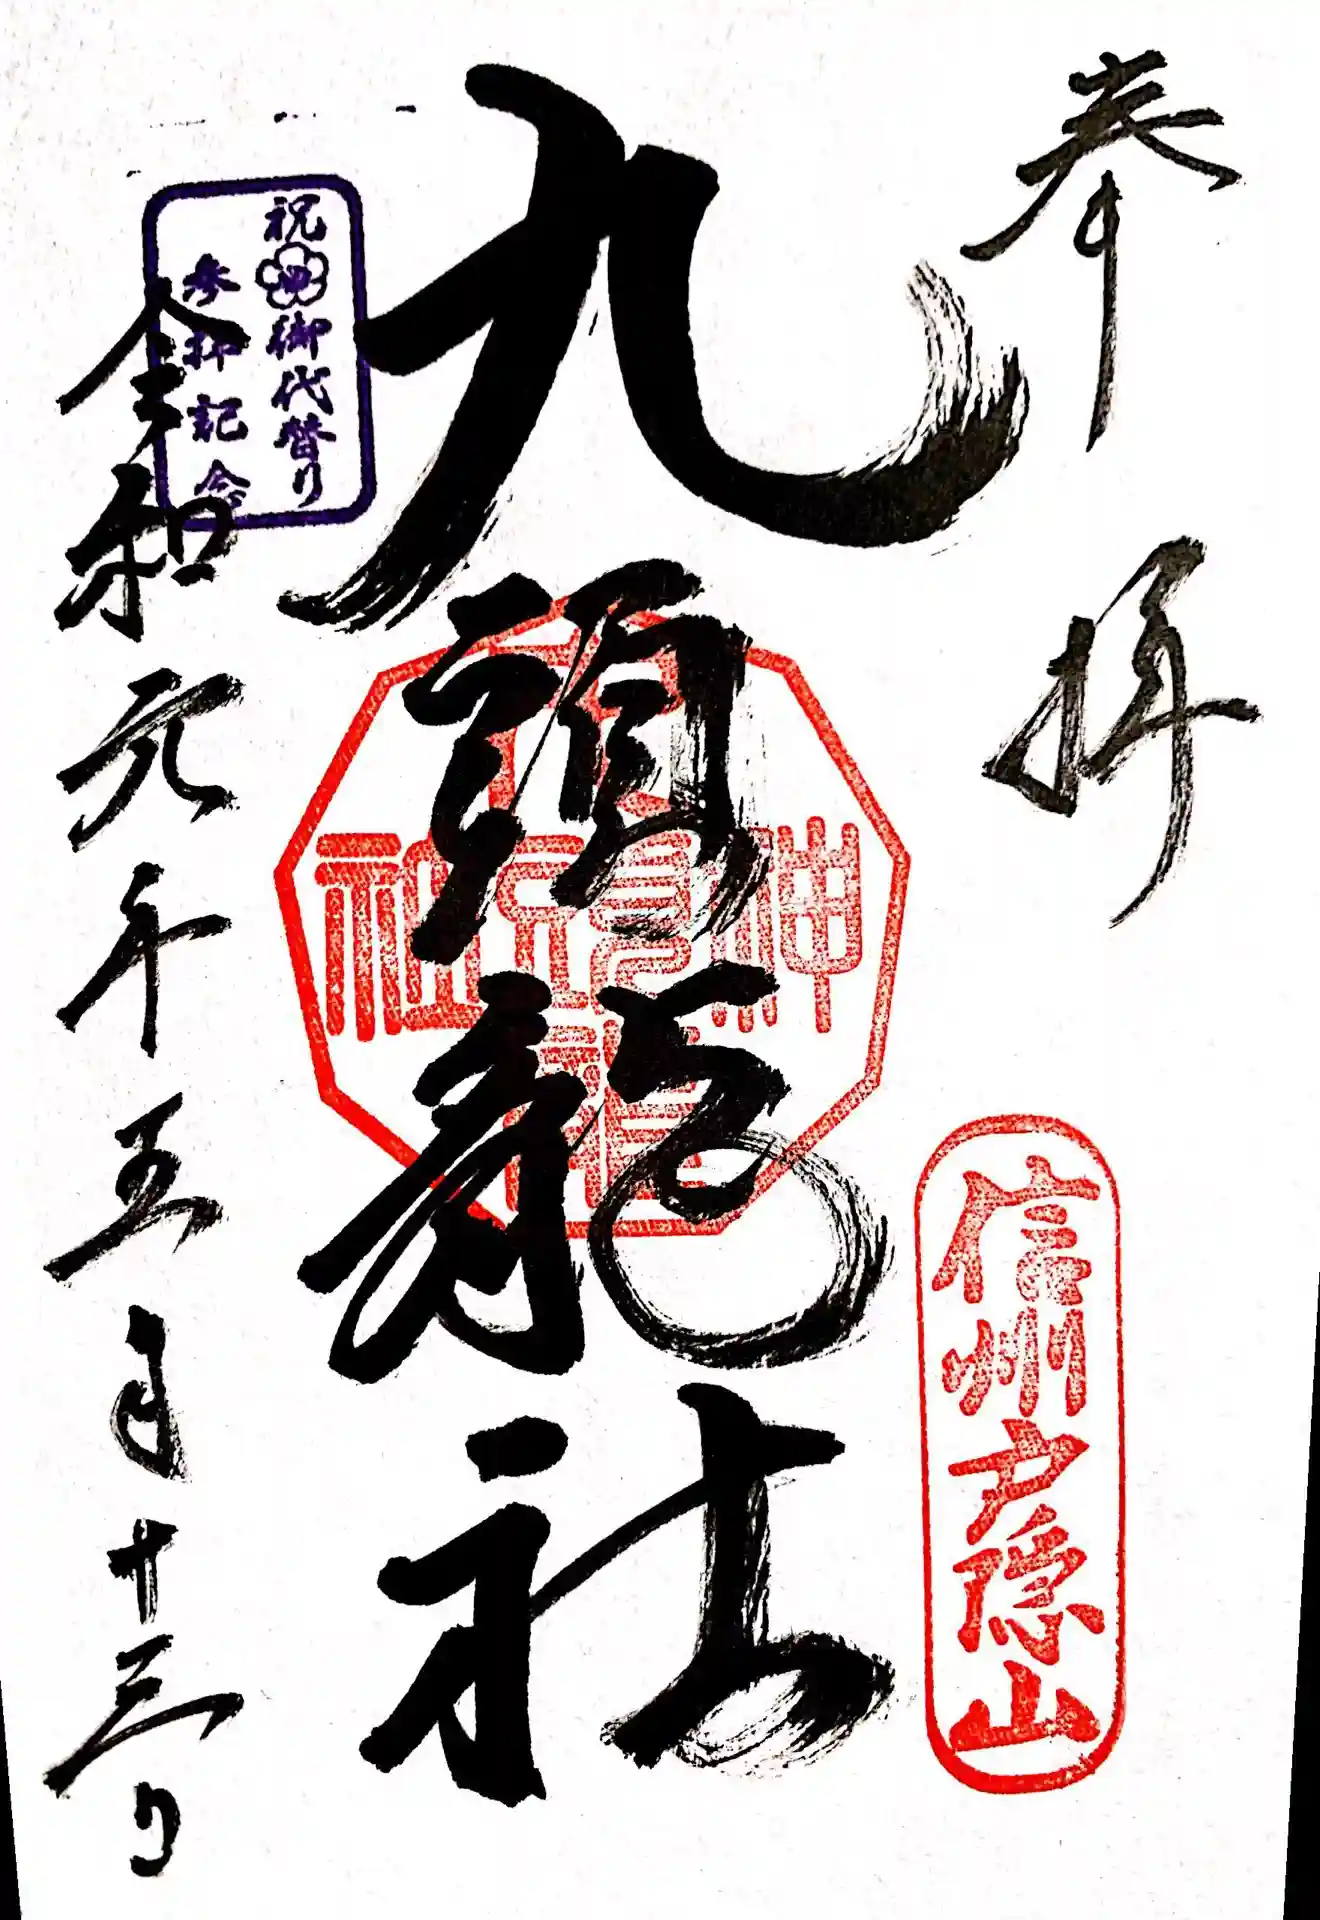 奉拝
信州戸隠山
九頭龍社
祝御代替り
参拝記念
令和元年五月十三日